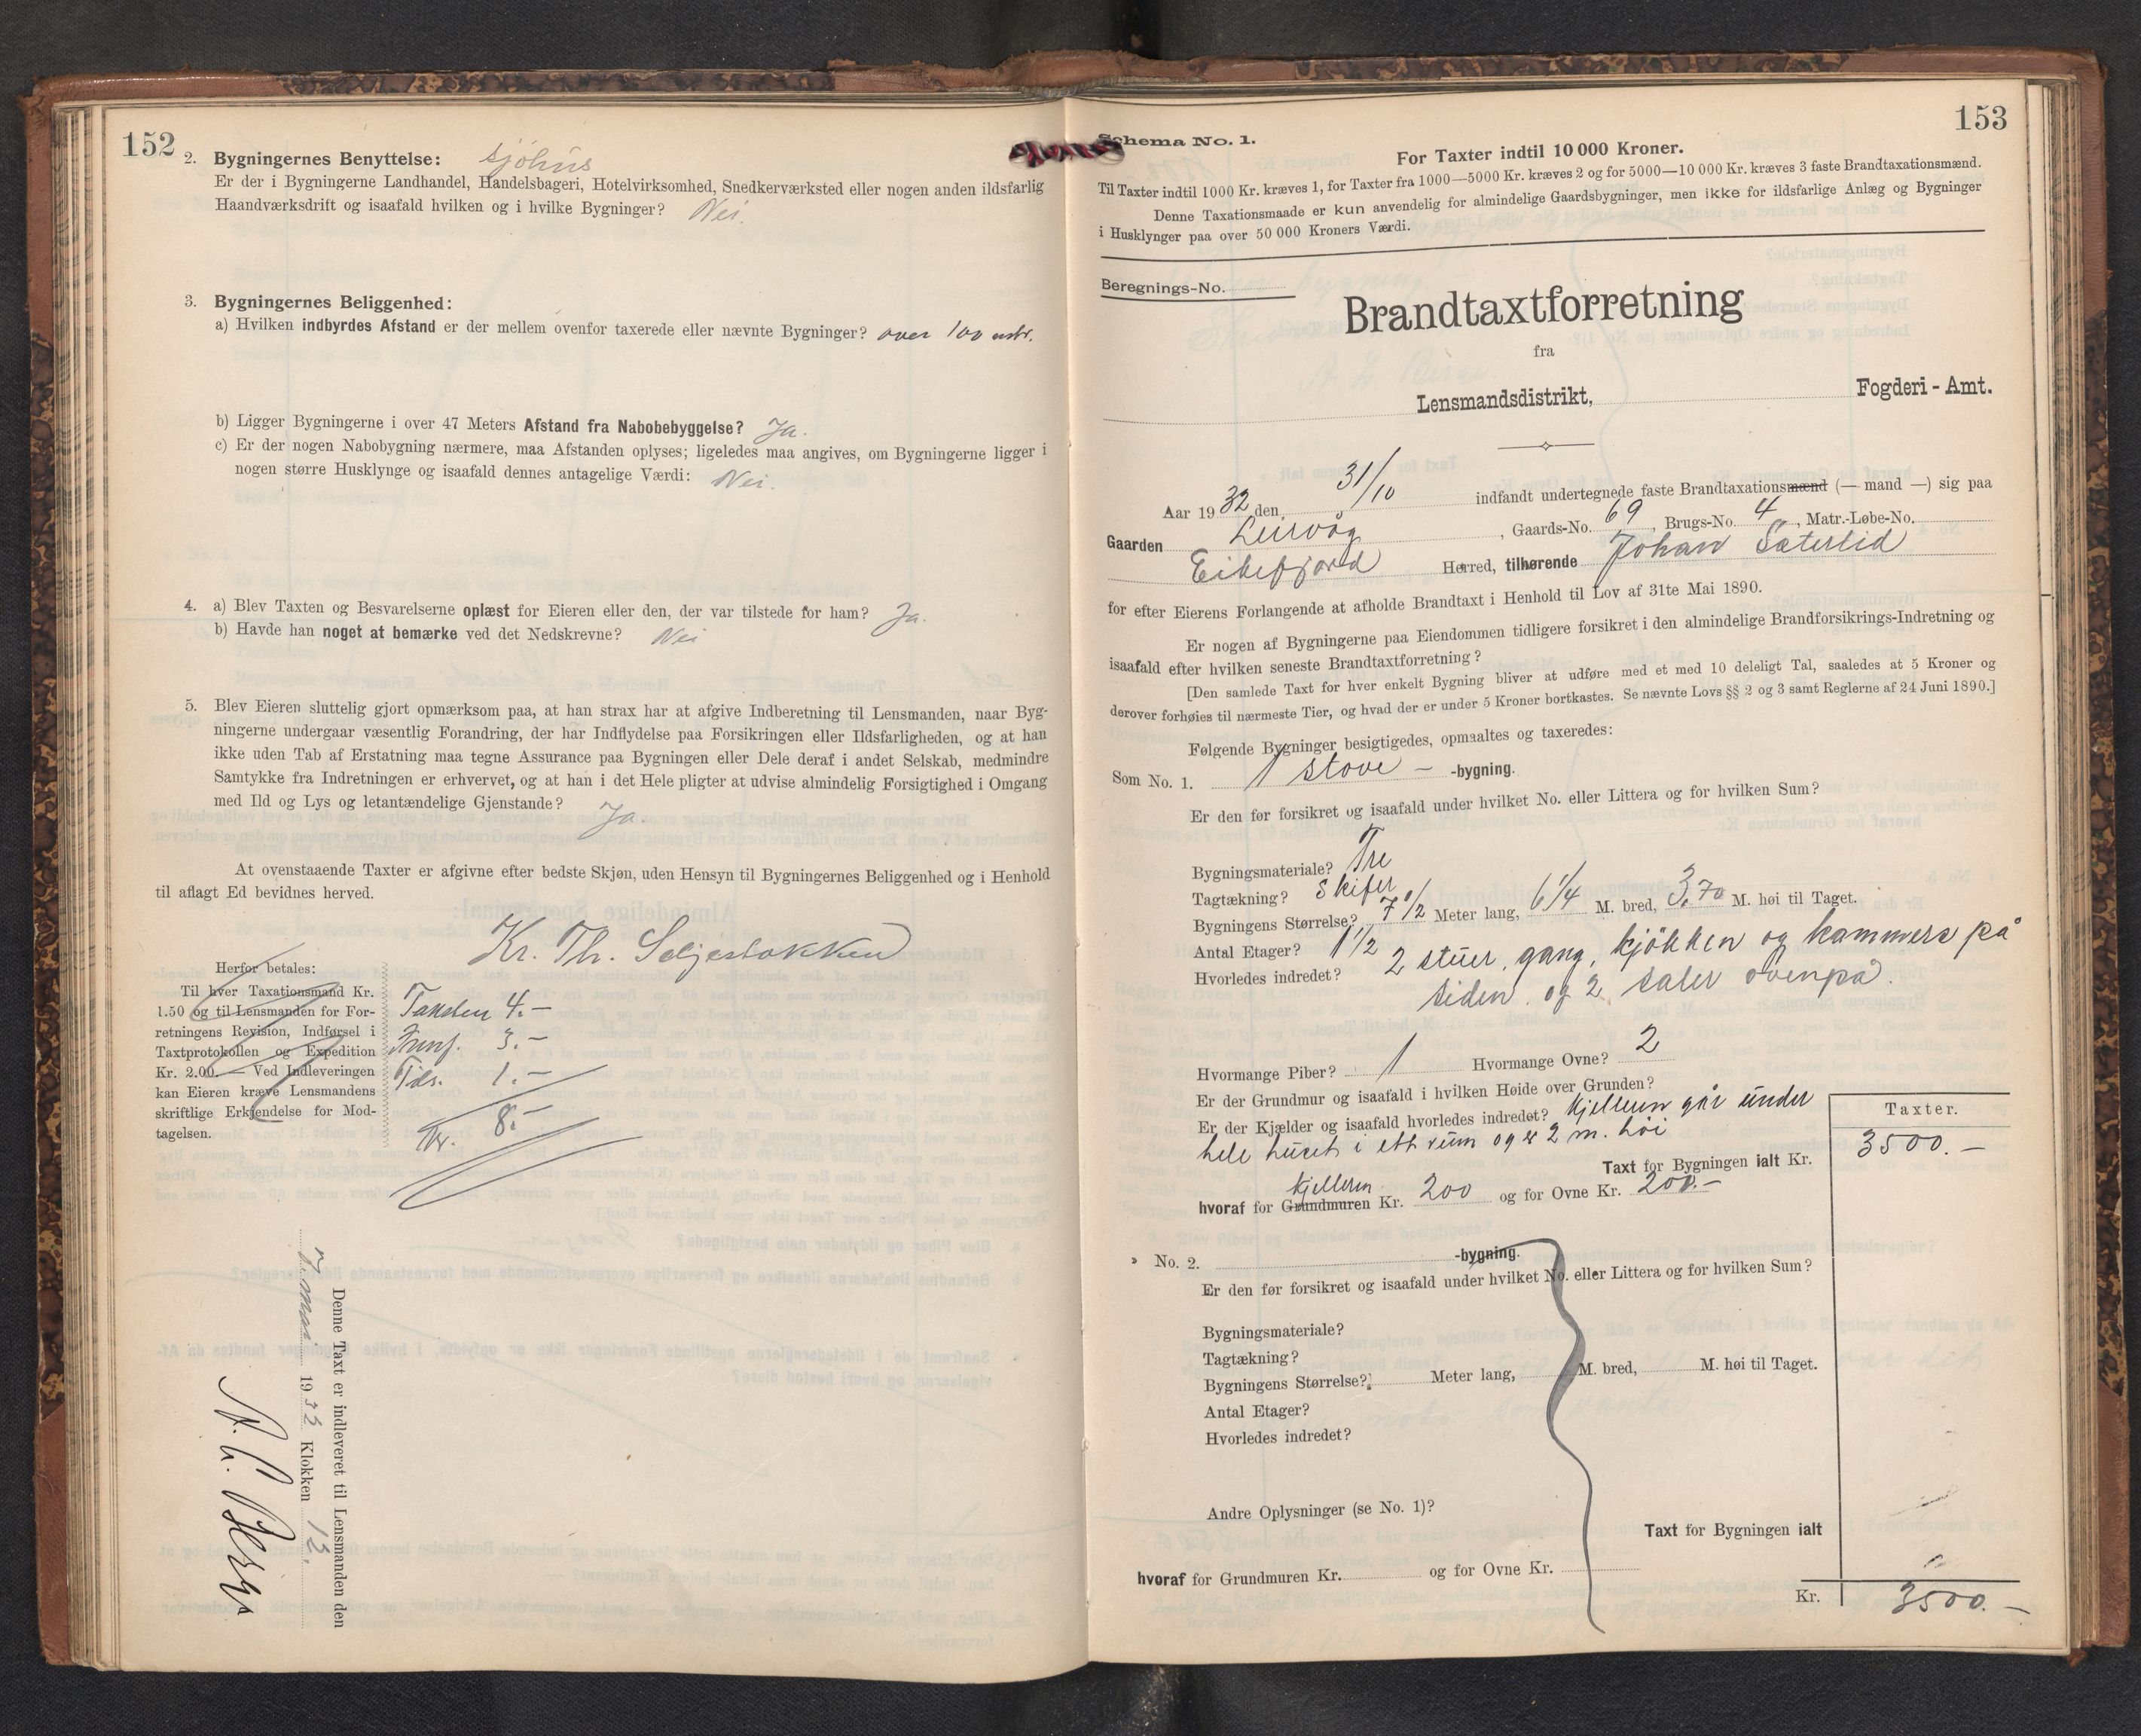 152
2. Bygningernes Benyttelse: sjöhus
Er der i Bygningerne Landhandel, Handelsbageri, Hotelvirksomhed, Snedkerværksted eller nogen anden ildsfarlig
Haandværksdrift og isaafald hvilken og i hvilke Bygninger? Nei.
3. Bygningernes Beliggenhed:
a) Hvilken indbyrdes Afstand er der mellem ovenfor taxerede eller nævnte Bygninger? over 100 mtr.
b) Ligger Bygningerne i over 47 Meters Afstand fra Nabobebyggelse? Ja.
c) Er der nogen Nabobygning nærmere, maa Afstanden oplyses; ligeledes maa angives, om Bygningerne ligger i
nogen større Husklynge og isaafald dennes antagelige Værdi: Nei.
4. a) Blev Taxten og Besvarelserne oplæst for Eieren eller den, der var tilstede for ham? Ja.
b) Havde han noget at bemærke ved det Nedskrevne? Nei
5. Blev Eieren sluttelig gjort opmærksom paa, at han strax har at afgive Indberetning til Lensmanden, naar Byg-
ningerne undergaar væsentlig Forandring, der har Indflydelse paa Forsikringen eller Ildsfarligheden, og at han
ikke uden Tab af Erstatning maa tegne Assurance paa Bygningen eller Dele deraf i andet Selskab, medmindre
Samtykke fra Indretningen er erhvervet, og at han i det Hele pligter at udvise almindelig Forsigtighed i Omgang
med Ild og Lys og letantændelige Gjenstande? Ja.
At ovenstaaende Taxter er afgivne efter bedste Skjøn, uden Hensyn til Bygningernes Beliggenhed og i Henhold
til aflagt Ed bevidnes herved.
Kr. Th. Seljestokken
Herfor betales:
Til hver Taxationsmand Kr.
1.50 og til Lensmanden for For-
retningens Revision, Indførsel i
Taxtprotokollen og Expedition
Kr. 2.00. — Ved Indleveringen
kan Eieren kræve Lensmandens
skriftlige Erkjendelse for Mod-
tagelsen.
Taksten 4.-
3.-
1.-
Kr. 8.-
Denne Taxt er indleveret til Lensmanden den
7. 1933 Klokken 12.
153
Schema No. 1.
For Taxter indtil 10 000 Kroner.
Til Taxter indtil 1000 Kr. kræves 1, for Taxter fra 1000—5000 Kr. kræves 2 og for 5000—10 000 Kr. kræves 3 faste Brandtaxationsmænd.
Denne Taxationsmaade er kun anvendelig for almindelige Gaardsbygninger, men ikke for ildsfarlige Anlæg og Bygninger
i Husklynger paa over 50 000 Kroners Værdi.
Beregnings-No.
Brandtaxtforretning
fra
Lensmandsdistrikt, Fogderi - Amt.
Aar 1932 den 31/10 indfandt undertegnede faste Brandtaxationsmænd (— mand —) sig paa
Gaarden Leirvåg, Gaards-No. 69, Brugs-No. 4, Matr.-Løbe-No.
Eikefjord Herred, tilhørende Johan Sæterlid
for efter Eierens Forlangende at afholde Brandtaxt i Henhold til Lov af 31te Mai 1890.
Er nogen af Bygningerne paa Eiendommen tidligere forsikret i den almindelige Brandforsikrings-Indretning og
isaafald efter hvilken seneste Brandtaxtforretning?
[Den samlede Taxt for hver enkelt Bygning bliver at udføre med et med 10 deleligt Tal, saaledes at 5 Kroner og
derover forhøies til nærmeste Tier, og hvad der er under 5 Kroner bortkastes. Se nævnte Lovs §§ 2 og 3 samt Reglerne af 24 Juni 1890.]
Følgende Bygninger besigtigedes, opmaaltes og taxeredes:
Som No. 1. 1 stove - -bygning.
Er den før forsikret og isaafald under hvilket No. eller Littera og for hvilken Sum?
Bygningsmateriale? Tre
Tagtækning? Skifer
Bygningens Størrelse? 7 1/2 Meter lang, 6 1/4 M. bred, 3,70 M. høi til Taget.
Antal Etager? 1 1/2
Hvorledes indredet? 2 stuer, gang, kjökken og kammers på
siden og 2 saler ovenpå.
Hvormange Piber? 1 Hvormange Ovne? 2
Er der Grundmur og isaafald i hvilken Høide over Grunden?
Er der Kjælder og isaafald hvorledes indredet? Kjelleren går under
hele huset i ett rum og er 2 m. höi
Taxter.
Taxt for Bygningen ialt Kr. 3500.-
kjelleren
hvoraf for Grundmuren Kr. 200 og for Ovne Kr. 200.-
No. 2. -bygning.
Er den før forsikret og isaafald under hvilket No. eller Littera og for hvilken Sum?
Bygningsmateriale?
Tagtækning?
Bygningens Størrelse? Meter lang, M. bred, M. høi til Taget.
Antal Etager?
Hvorledes indredet?
Andre Oplysninger (se No. 1)?
Taxt for Bygningen ialt
hvoraf for Grundmuren Kr. og for Ovne Kr.
Kr. 3500.-